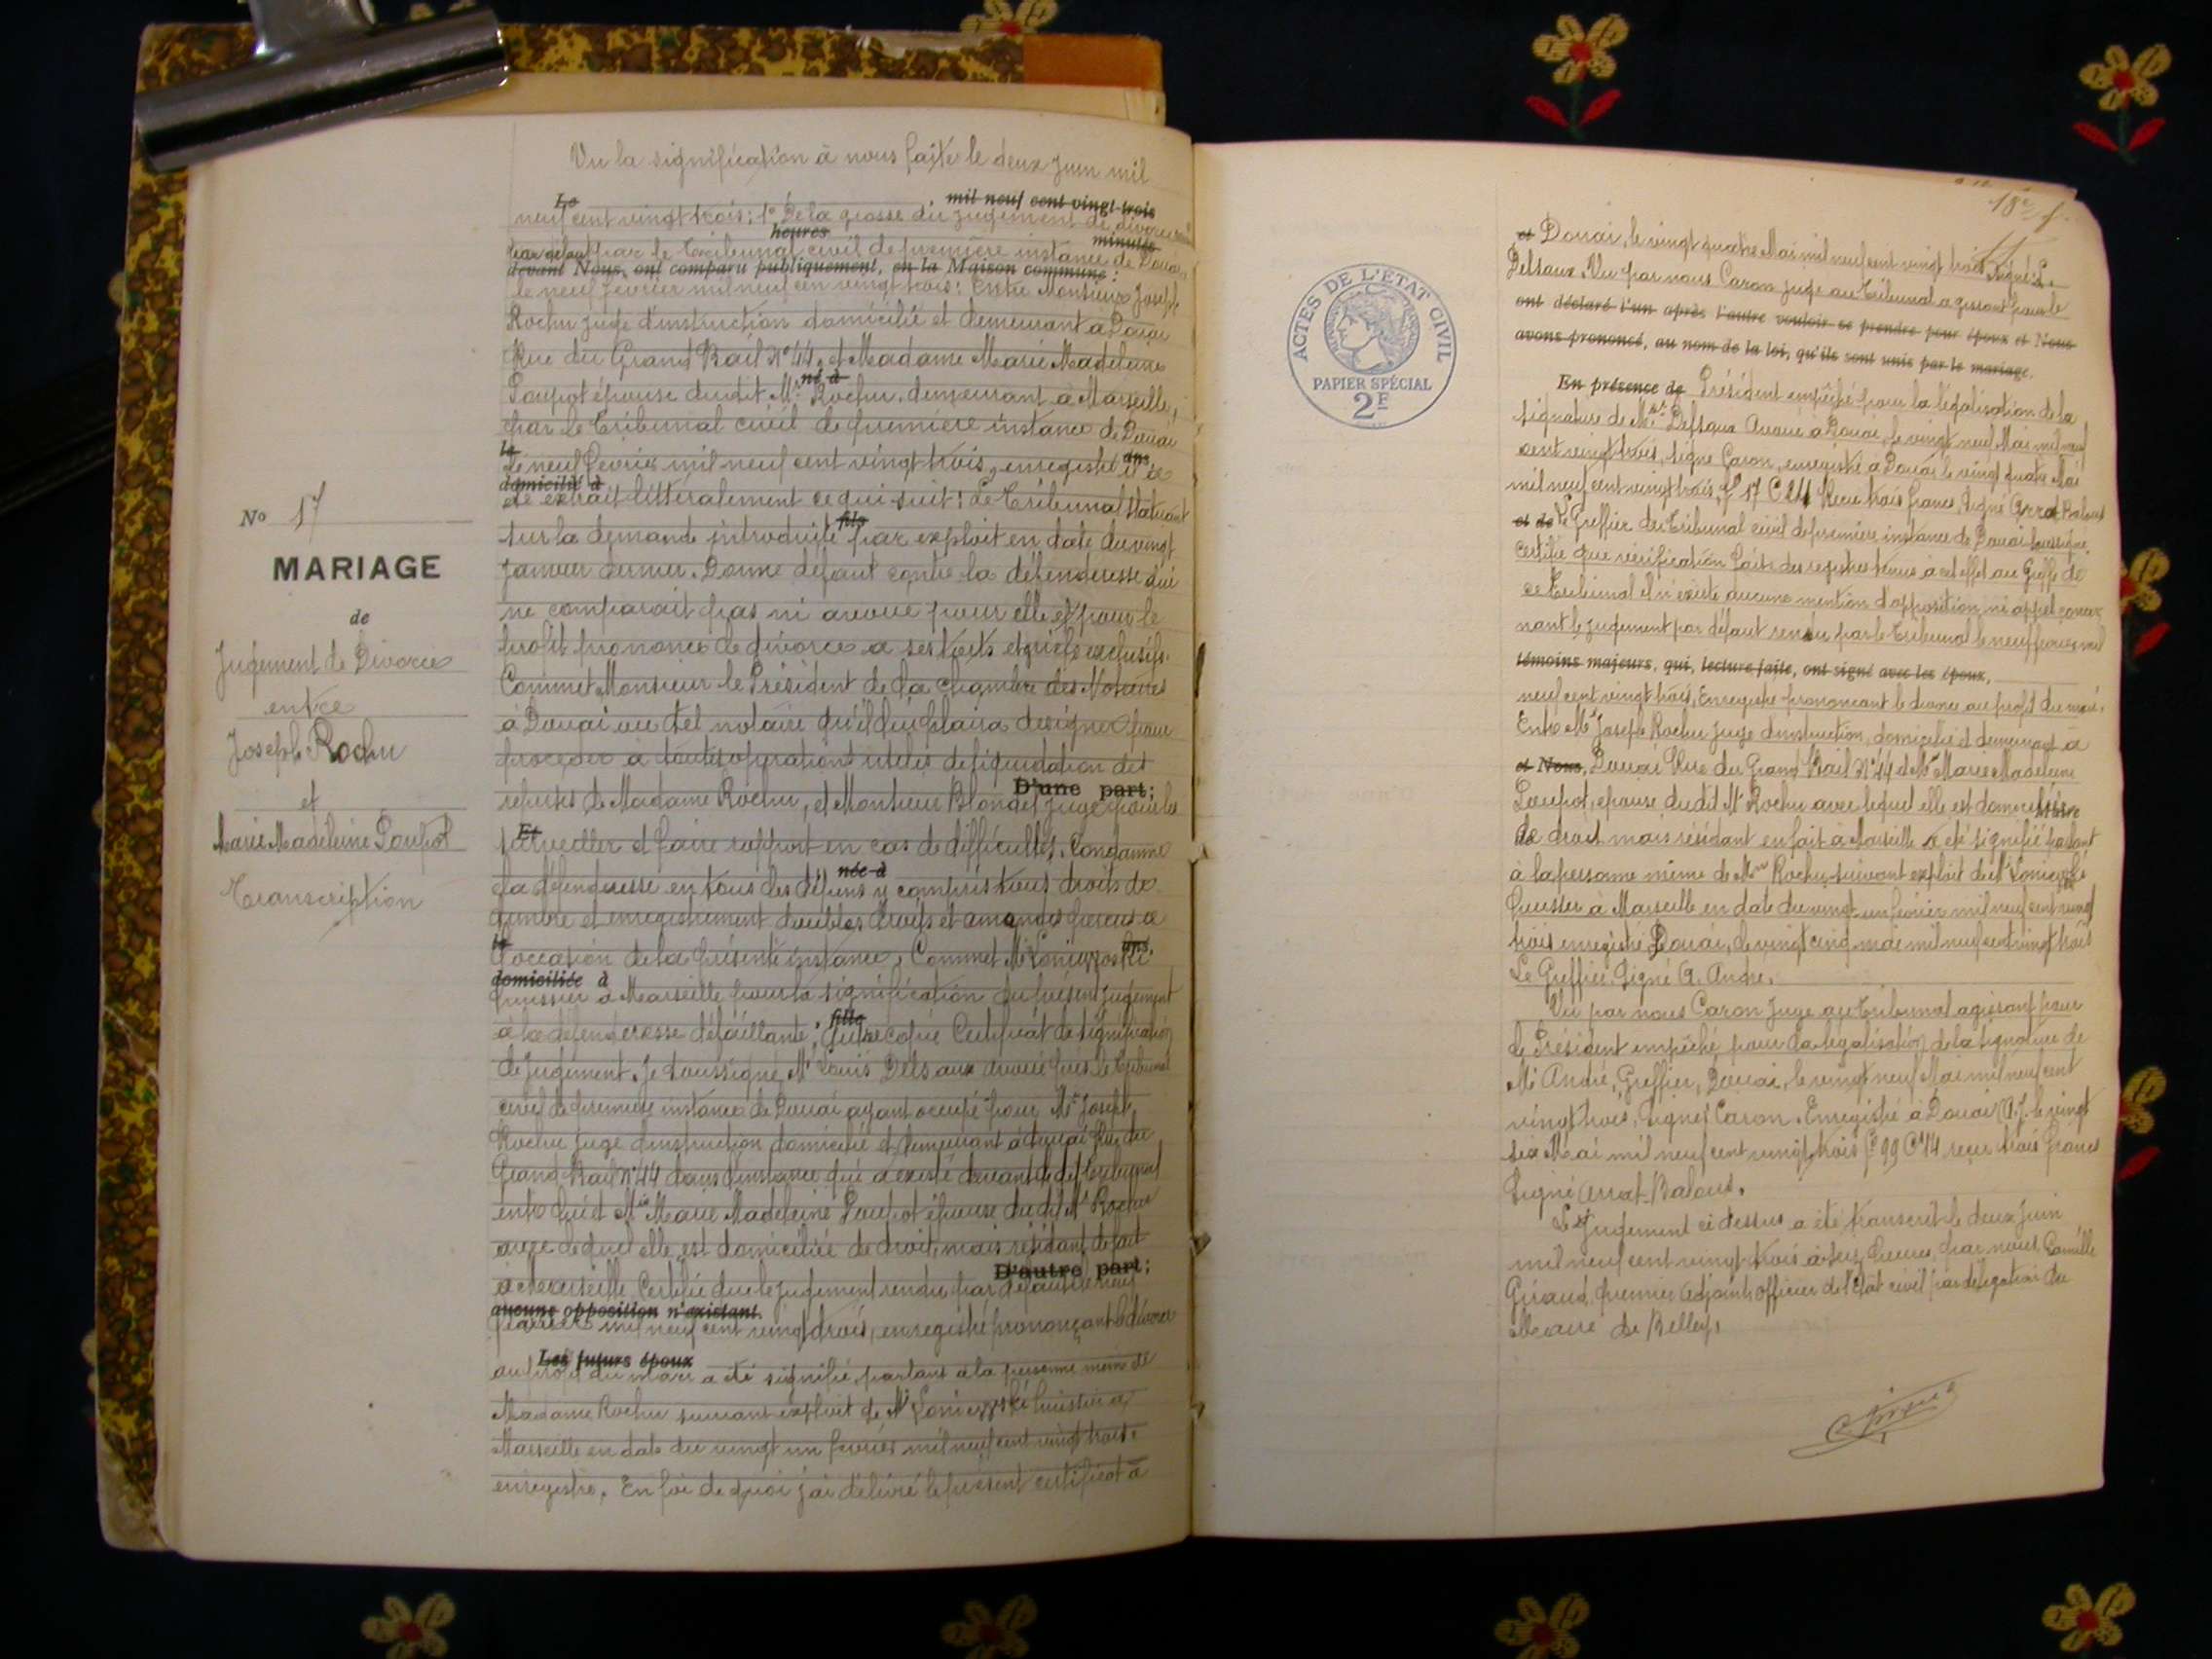 No 17
MARIAGE
de
Jugement de Divorce
entre
Joseph Rochu
et
Marie Madeleine Poupot
Transcription
Vu la signification à nous faite le deux juin mil
Le mil neuf cent vingt-trois
neuf cent vingt trois: 1° De la grosse du jugement de divorce
heures minutes
par défaut par le Tribunal civil de première instance de Douai
devant Nous, ont comparu publiquement, en la Maison commune:
le neuf février mil neuf cen vingt trois: Entre Monsieur Joseph
Rochu juge d'instruction domicilié et demeurant à Douai
Rue du Grand Bail N° 44, et Madame Marie Madeleine
né à
Poupot épouse dudit Mr Rochu, demeurant à Marseille,
par le Tribunal civil de première instance de Douai
le ans,
le neuf février mil neuf cent vingt trois, enregistré il a
domicilié à
été extrait littéralement ce qui suit: Le Tribunal statuant
fils
sur la demande introduite par exploit en date du vingt
janvier dernier. Donne défaut contre la défenderesse qui
ne comparait pas ni avoué pour elle et pour le
profit prononce le divorce a ses torts et griefs exclusifs.
Commet Monsieur le Président de la Chambre des Notaires
à Douai ou tel notaire qu'il lui plaira designer pour
proceder à toutes opérations utiles de liquidation des
D'une part;
reprises de Madame Rochu, et Monsieur Blondel juge pour les
Et
surveiller et faire rapport en cas de difficultés. Condamne
née à
la défenderesse en tous les dépens y compris tous droits de
timbre et enregistrement doubles droits et amendes perçus à
le ans,
l'occasion de la présente instance, Commet Mr Lonieyvoski
domiciliée à
huissier à Marseille pour la signification du présent jugement
fille
à la défenderesse défaillante; Autre copie Certificat de signification
de jugement. Je soussigné Mr Louis Delsaux avoué près le Tribunal
civil de première instance de Douai ayant occupé pour Mr Joseph
Rochu Juge d'instruction domicilié et demeurant à Douai Rue du
Grand Bail N° 44 dans l'instance qui a existé devant le dit Tribunal
entre lui et Marie Madeleine Poupot épouse du dit Mr Rochu
avec lequel elle est domiciliée de droit, mais résidant de fait
D'autre part;
à Marseille Certifie que le jugement rendu par défaut le neuf
aucune opposition n'existant.
février mil neuf cent vingt trois, enregistré prononçant le divorce
Les futurs époux
au profit du mari a été signifié, parlant à la personne même de
Madame Rochu suivant exploit de Mr huissier à
Marseille en date du vingt un février mil neuf cent vingt trois.
enregistré. En foi de quoi j'ai délivré le présent certificat à
ACTES DE L'ÉTAT CIVIL
PAPIER SPÉCIAL
2F
18e f.
et Douai, le vingt quatre Mai mil neuf cent vingt trois, signé: L.
Delsaux. Vu par nous Caron juge au Tribunal agissant pour le
ont déclaré l'un après l'autre vouloir se prendre pour époux et Nous
avons prononcé, au nom de la loi, qu'ils sont unis par le mariage.
En présence de Président empêché pour la légalisation de la
signature de Mr Delsaux Avoué à Douai, le vingt neuf Mai mil neuf
cent vingt trois, signé Caron, enregistré à Douai le vingt quatre Mai
mil neuf cent vingt trois, f° 17 C 24 Reçu trois francs, Signé Arrat Balous
et de Le Greffier du Tribunal civil de première instance de Douai soussigné,
certifie que vérification faite des registres tenus à cet effet au Greffe de
ce Tribunal il n'existe aucune mention d'opposition ni appel concer
nant le jugement par défaut rendu par le Tribunal le neuf février mil
témoins majeurs, qui, lecture faite, ont signé avec les époux,
neuf cent vingt trois, Enregistré prononçant le divorce au profit du mari.
Entre Mr Joseph Rochu Juge d'instruction, domicilié et demeurant à
et Nous, Douai Rue du Grand Bail N° 44 et Me Marie Madeleine
Poupot, épouse dudit Mr Rochu avec lequel elle est domiciliée Maire
de droit mais résidant en fait à Marseille a été signifié parlant
à la personne même de Mme Rochu suivant exploit de Mr
huissier à Marseille en date du vingt un février mil neuf cent vingt
trois enregistré Douai, le vingt cinq mai mil neuf cent vingt trois
Le Greffier Signé A. André.
Vu par nous Caron Juge au Tribunal agissant pour
le Président empêché pour la légalisation de la signature de
Mr André, Greffier, Douai, le vingt neuf Mai mil neuf cent
vingt trois, Signé Caron. Enregistré à Douai A.J. le vingt
six Mai mil neuf cent vingt trois f° 99 C 14 reçu trois francs
Signé Arrat-Balous.
Le jugement ci dessus a été transcrit le deux juin
mil neuf cent vingt trois à heures, par nous, Camille
premier adjoint, officier de l'état civil par délégation du
Maire de Belley,